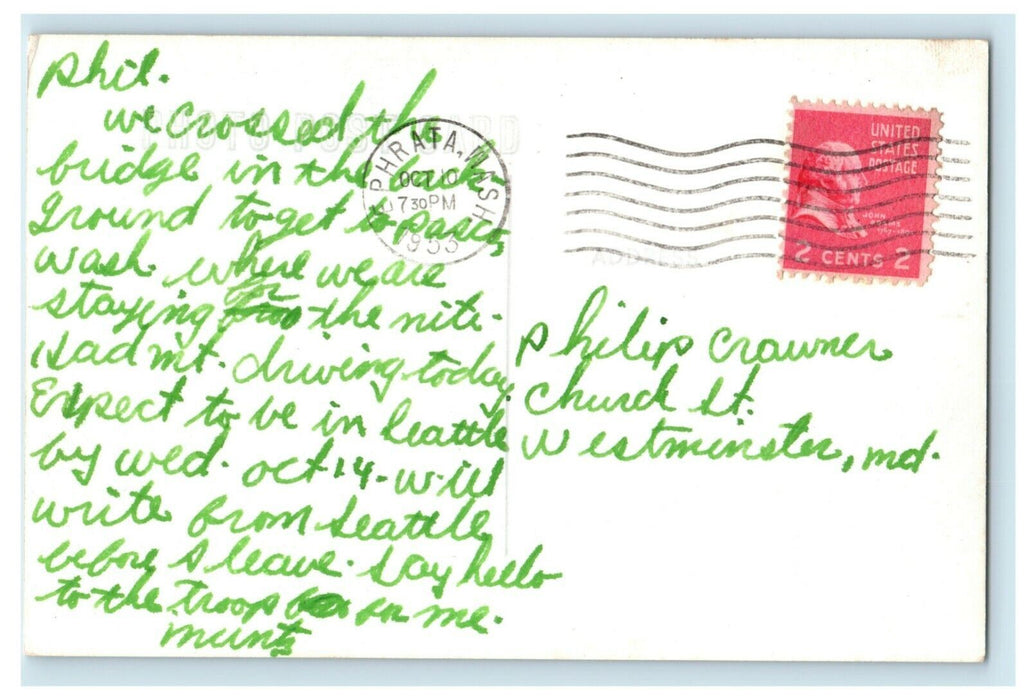 Phil.
we crossed the
bridge in the back
ground to get to Pasco,
Wash. where we are
staying for the nite.
Had mt. driving today.
Expect to be in Seattle
by Wed. Oct 14 - will
write from Seattle
before I leave. Say hello
to the troop for me.
PHOTO POST CARD
EPHRATA, WASH.
OCT 10
730PM
1953
UNITED
STATES
POSTAGE
JOHN
2 CENTS 2
ADDRESS
Philip Crawmer
Church St.
Westminster, Md.